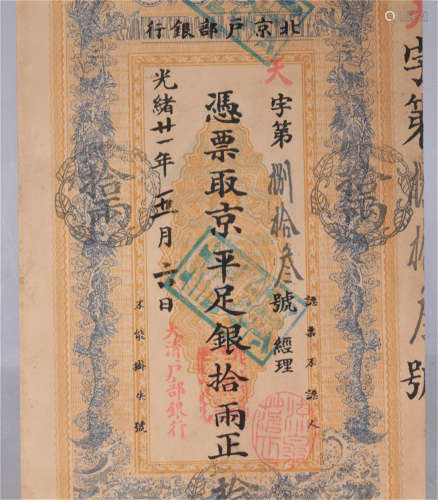 北京戶部銀行
天字第捌拾叁號 經理
認票不認人
憑票取京平足銀拾兩正
大清戶部銀行
光緒廿一年五月六日
不能掛失號
拾兩
拾兩
天字第捌拾叁號
拾